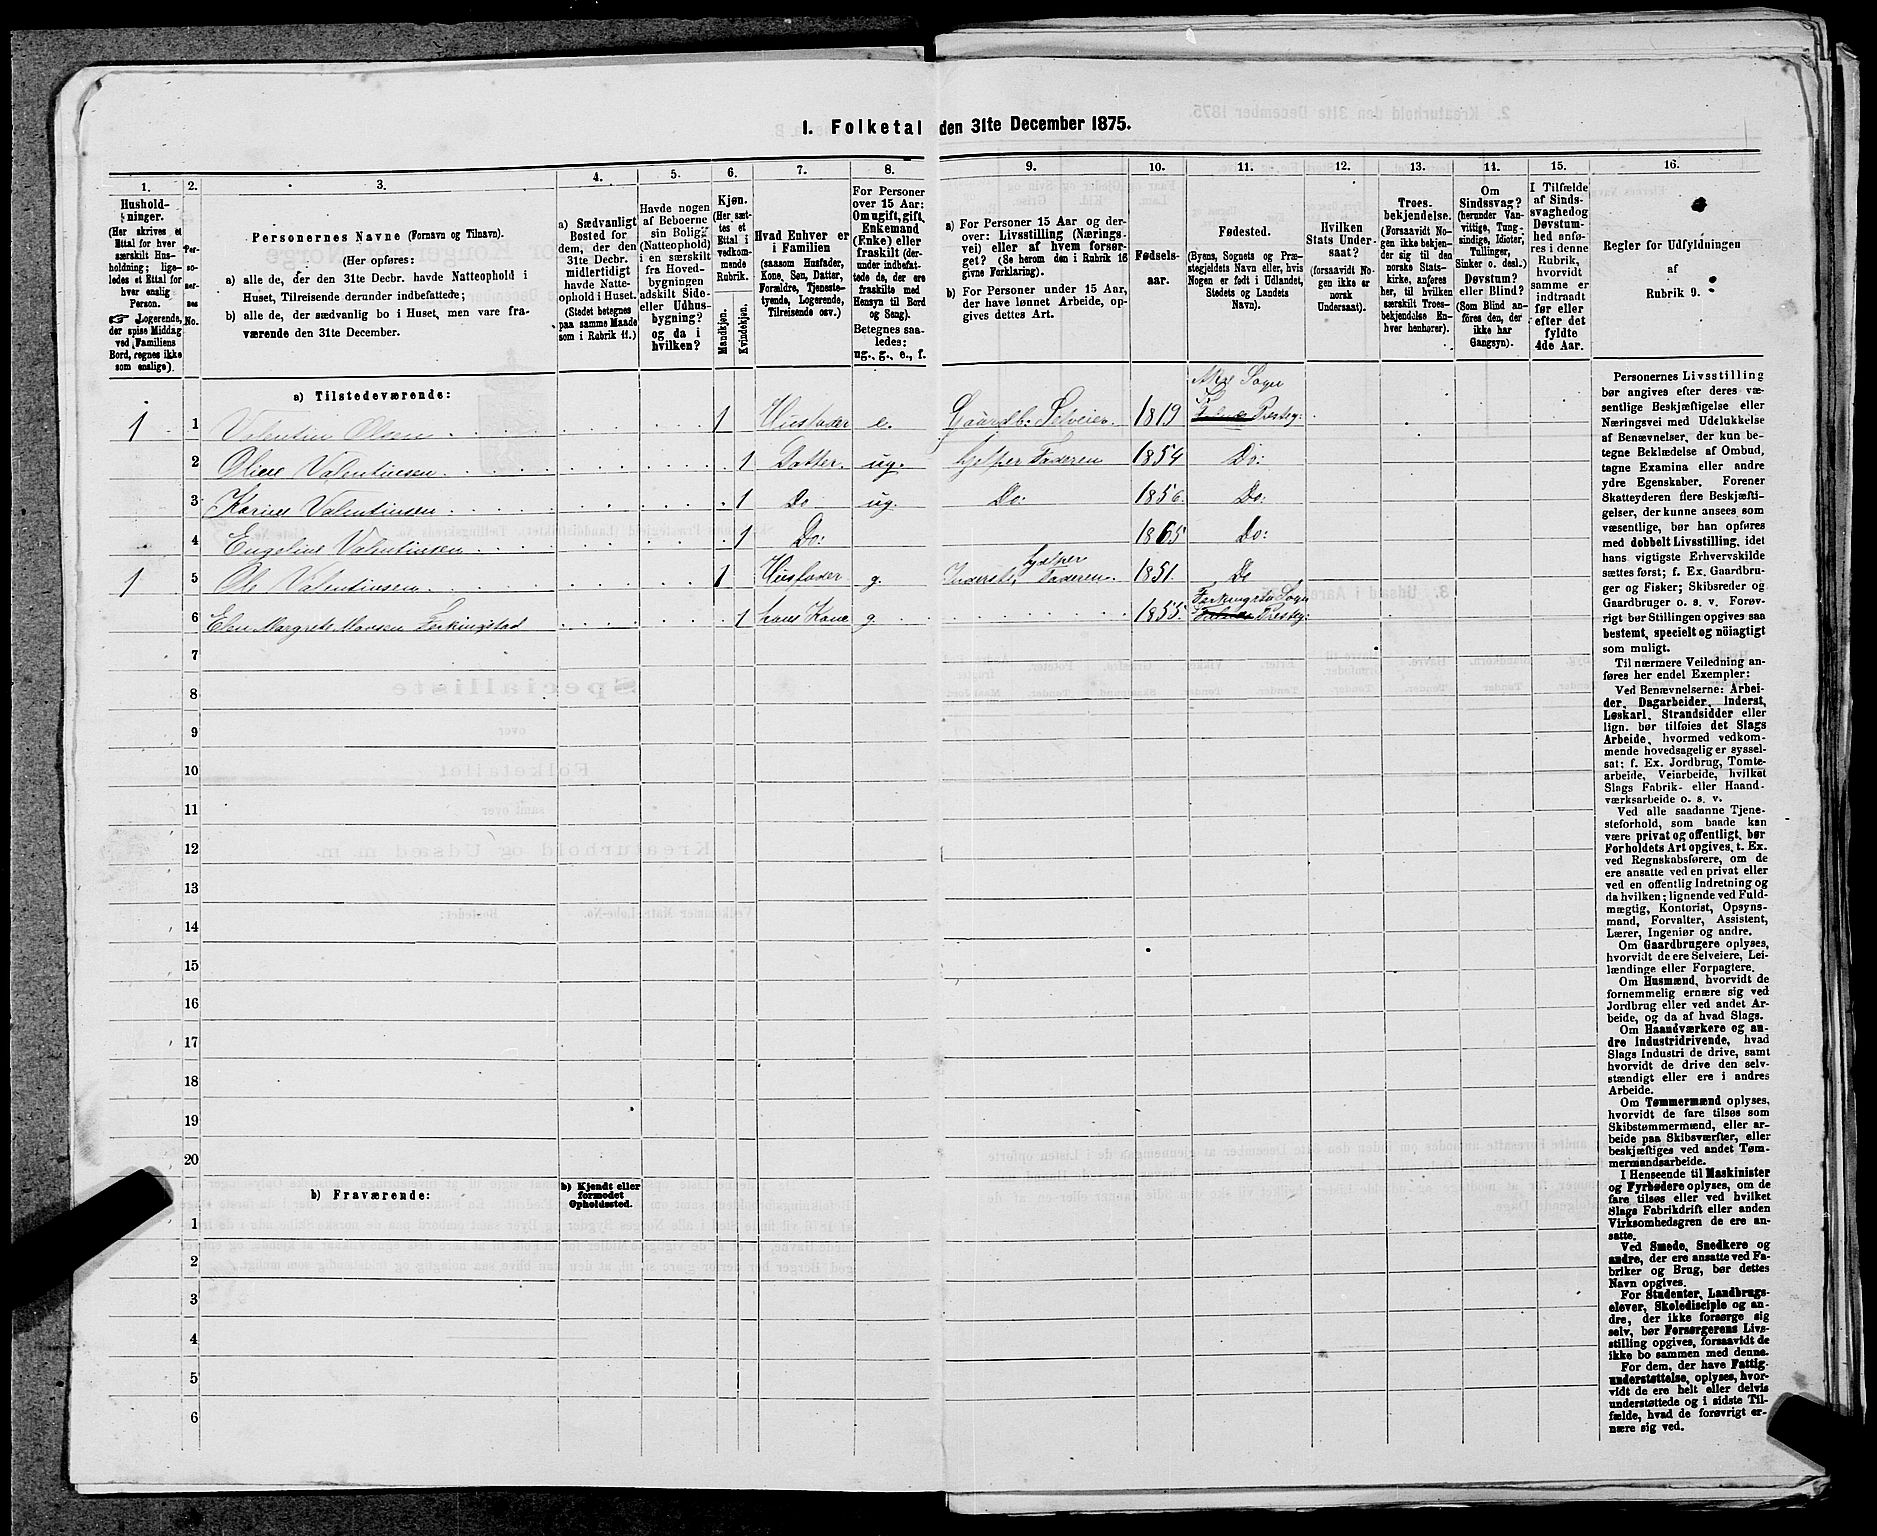 I. Folketal den 31te December 1875.
1.
2.
3.
4.
5.
6.
7.
8.
9.
10.
11.
12.
13.
14.
15.
16.
Hushold-
ninger.
(Her skrives et
Ettal for hver
særskilt Hus-
holdning; lige-
ledes et Ettal for
hver enslig
Person.
☞ Logerende,
der spise Middag
ved Familiens
Bord, regnes ikke
som enslige).
Per-
so-
ner-
nes
No.
Personernes Navne (Fornavn og Tilnavn).
(Her opføres:
a) alle de, der den 31te Decbr. havde Natteophold i
Huset, Tilreisende derunder indbefattede;
b) alle de, der sædvanlig bo i Huset, men vare fra-
værende den 31te December.
a) Sædvanligt
Bosted for
dem, der den
31te Decbr.
midlertidigt
havde Natte-
ophold i Huset.
(Stedet betegnes
paa samme Maade
som i Rubrik 11.)
Havde nogen
af Beboerne
sin Bolig
(Natteophold)
i en særskilt
fra Hoved-
bygningen
adskilt Side-
eller Udhus-
bygning?
og da i
hvilken?
Kjøn.
(Her sæt-
tes et
Ettal i
vedkom-
mende
Rubrik.
Mandkjøn.
Kvindekjøn.
Hvad Enhver er
i Familien
(saasom Husfader,
Kone, Søn, Datter,
Forældre, Tjeneste-
tyende, Logerende,
Tilreisende osv.)
For Personer
over 15 Aar:
Om ugift, gift,
Enkemand
(Enke) eller
fraskilt (der-
under indbefat-
tede de, der ere
fraskilte med
Hensyn til Bord
og Seng).
Betegnes saa-
ledes:
ug., g., e., f.
a) For Personer 15 Aar og der-
over: Livsstilling (Nærings-
vei) eller af hvem forsør-
get? (Se herom den i Rubrik 16
givne Forklaring).
b) For Personer under 15 Aar,
der have lønnet Arbeide, op-
gives dettes Art.
Fødsels-
aar.
Fødested.
(Byens, Sognets og Præ-
stegjeldets Navn eller, hvis
Nogen er født i Udlandet,
Stedets og Landets
Navn).
Hvilken
Stats Under-
saat?
(forsaavidt No-
gen ikke er
norsk
Undersaat).
Troes-
bekjendelse.
(Forsaavidt No-
gen ikke bekjen-
der sig til den
norske Stats-
kirke, anføres
her, til hvilken
særskilt Troes-
bekjendelse En-
hver henhører).
Om
Sindssvag?
(herunder Van-
vittige, Tung-
sindige, Idioter,
Tullinger,
Sinker o. desl.)
Døvstum?
eller Blind?
(Som Blind an-
føres den, der
ikke har
Gangsyn).
I Tilfælde
af Sinds-
svaghed og
Døvstum-
hed anfø-
res i denne
Rubrik,
hvorvidt
samme er
indtraadt
før eller
efter det
fyldte
4de Aar.
Regler for Udfyldningen
af
Rubrik 9.
a) Tilstedeværende:
Akre Sogn
1 1 Valentin Olsen 1 Husfader e. Gaardb: Selveier. 1819 Prestg:
2 Oline Valentinsen 1 Datter. ug. hjelper Faderen 1854 Do:
3 Karine Valentinsen 1 Do ug. Do: 1856. Do:
4 Engeline Valentinsen 1 Do: 1865 Do:
1 5 Ole Valentinsen 1 Husfader g. Inderst, hjelper Faderen. 1851. Do
Ferkingstad Sogn
6 Elen Margrete Monsen Ferkingstad 1 hans Kone g. 1855. Prestg:
7
8
9
10
11
12
13
14
15
16
17
18
19
20
b) Fraværende:
b) Kjendt eller
formodet
Opholdssted.
1
2
3
4
5
6
Personernes Livsstilling
bør angives efter deres væ-
sentlige Beskjæftigelse eller
Næringsvei med Udelukkelse
af Benævnelser, der kun be-
tegne Beklædelse af Ombud,
tagne Examina eller andre
ydre Egenskaber. Forener
Skatteyderen flere Beskjæfti-
gelser, der kunne ansees som
væsentlige, bør han opføres
med dobbelt Livsstilling, idet
hans vigtigste Erhvervskilde
sættes først; f. Ex. Gaardbru-
ger og Fisker; Skibsreder og
Gaardbruger o. s. v. Forøv-
rigt bør Stillingen opgives saa
bestemt, specielt og nøiagtigt
som muligt.
Til nærmere Veiledning an-
føres her endel Exempler:
Ved Benævnelserne: Arbei-
der, Dagarbeider, Inderst,
Løskarl, Strandsidder eller
lign. bør tilføies det Slags
Arbeide, hvormed vedkom-
mende hovedsagelig er syssel-
sat; f. Ex. Jordbrug, Tomte-
arbeide, Veiarbeide, hvilket
Slags Fabrik- eller Haand-
værksarbeide o. s. v.
Ved alle saadanne Tjene-
steforhold, som baade kan
være privat og offentligt, bør
Forholdets Art opgives, t. Ex.
ved Regnskabsførere, om de
ere ansatte ved en privat eller
ved en offentlig Indretning og
da hvilken; lignende ved Fuld-
mægtig, Kontorist, Opsyns-
mand, Forvalter, Assistent,
Lærer, Ingeniør og andre.
Om Gaardbrugere oplyses,
hvorvidt de ere Selveiere, Lei-
lændinge eller Forpagtere.
Om Husmænd, hvorvidt de
fornemmelig ernære sig ved
Jordbrug eller ved andet Ar-
beide, og da af hvad Slags.
Om Haandværkere og an-
dre Industridrivende, hvad
Slags Industri de drive, samt
hvorvidt de drive den selv-
stændigt eller ere i andres
Arbeide.
Om Tømmermænd oplyses,
hvorvidt de fare tilsøs som
Skibstømmermænd, eller ar-
beide paa Skibsværfter, eller
beskjæftiges ved andet Tøm-
mermandsarbeide.
I Henseende til Maskinister
og Fyrbødere oplyses, om de
fare tilsøs eller ved hvilket
Slags Fabrikdrift eller anden
Virksomhedsgren de ere an-
satte.
Ved Smede, Snedkere og
andre, der ere ansatte ved Fa-
briker og Brug, bør dettes
Navn opgives.
For Studenter, Landbrugs-
elever, Skoledisciple og an-
dre, der ikke forsørge sig
selv, bør Forsørgerens Livs-
stilling opgives, forsaavidt de
ikke bo sammen med denne.
For dem, der have Fattig-
understøttelse, oplyses, hvor-
vidt de ere helt eller delvis
understøttede og i sidste Til-
fælde, hvad de forøvrigt er-
nære sig ved.